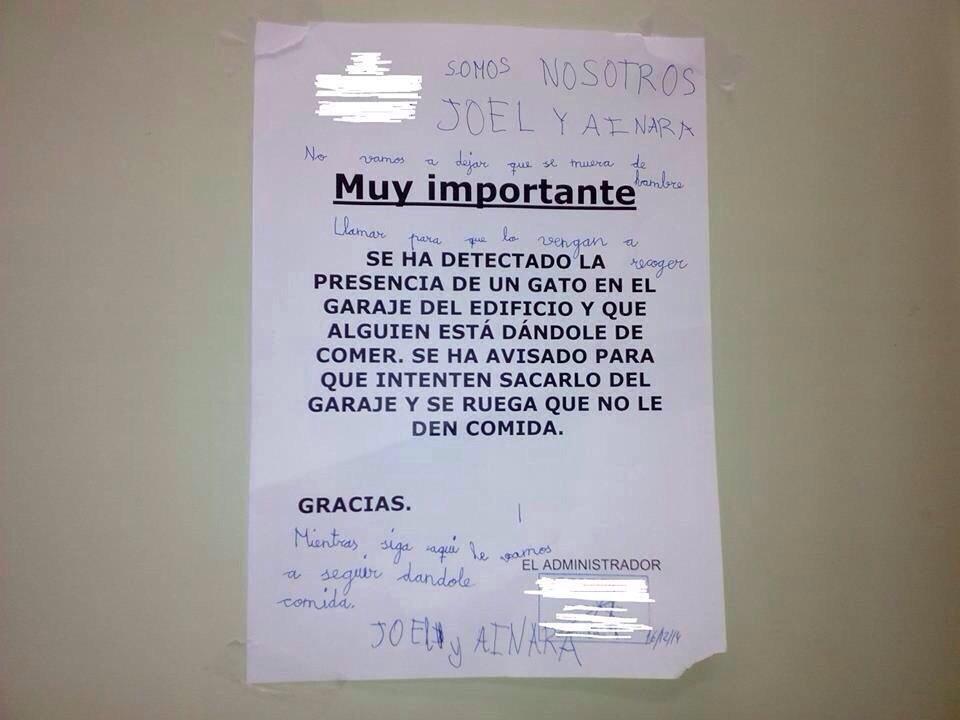 SOMOS NOSOTROS
JOEL Y AINARA
No vamos a dejar que se muera de
hambre
Muy importante
Llamar para que lo vengan a
recoger
SE HA DETECTADO LA
PRESENCIA DE UN GATO EN EL
GARAJE DEL EDIFICIO Y QUE
ALGUIEN ESTÁ DÁNDOLE DE
COMER. SE HA AVISADO PARA
QUE INTENTEN SACARLO DEL
GARAJE Y SE RUEGA QUE NO LE
DEN COMIDA.
GRACIAS.
Mientras siga aqui le vamos
a seguir dandole
comida.
EL ADMINISTRADOR
JOEL y AINARA
16/12/14